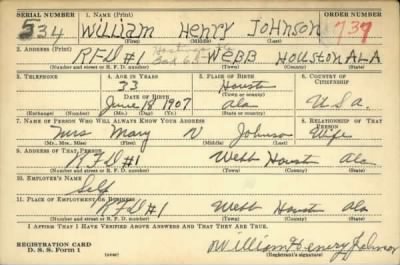 SERIAL NUMBER 1. NAME (Print) ORDER NUMBER
534 William Henry Johnson 737
(First) (Middle) (Last)
2. ADDRESS (Print)
RFD #1 Webb Houston ALA
(Number and street or R. F. D. number) (Town) (County) (State)
3. TELEPHONE 4. AGE IN YEARS 5. PLACE OF BIRTH 6. COUNTRY OF CITIZENSHIP
33 Houston
DATE OF BIRTH (Town or county)
June 18 1907 Ala U.S.A.
(Exchange) (Number) (Mo.) (Day) (Yr.) (State or country)
7. NAME OF PERSON WHO WILL ALWAYS KNOW YOUR ADDRESS 8. RELATIONSHIP OF THAT PERSON
Mrs Mary V Johnson Wife
(Mr., Mrs., Miss) (First) (Middle) (Last)
9. ADDRESS OF THAT PERSON
RFD #1 Webb Houston Ala
(Number and street or R. F. D. number) (Town) (County) (State)
10. EMPLOYER'S NAME
Self
11. PLACE OF EMPLOYMENT OR BUSINESS
RFD #1 Webb Houston Ala
(Number and street or R. F. D. number) (Town) (County) (State)
I AFFIRM THAT I HAVE VERIFIED ABOVE ANSWERS AND THAT THEY ARE TRUE.
REGISTRATION CARD
D. S. S. Form 1 William Henry Johnson
(Registrant's signature)